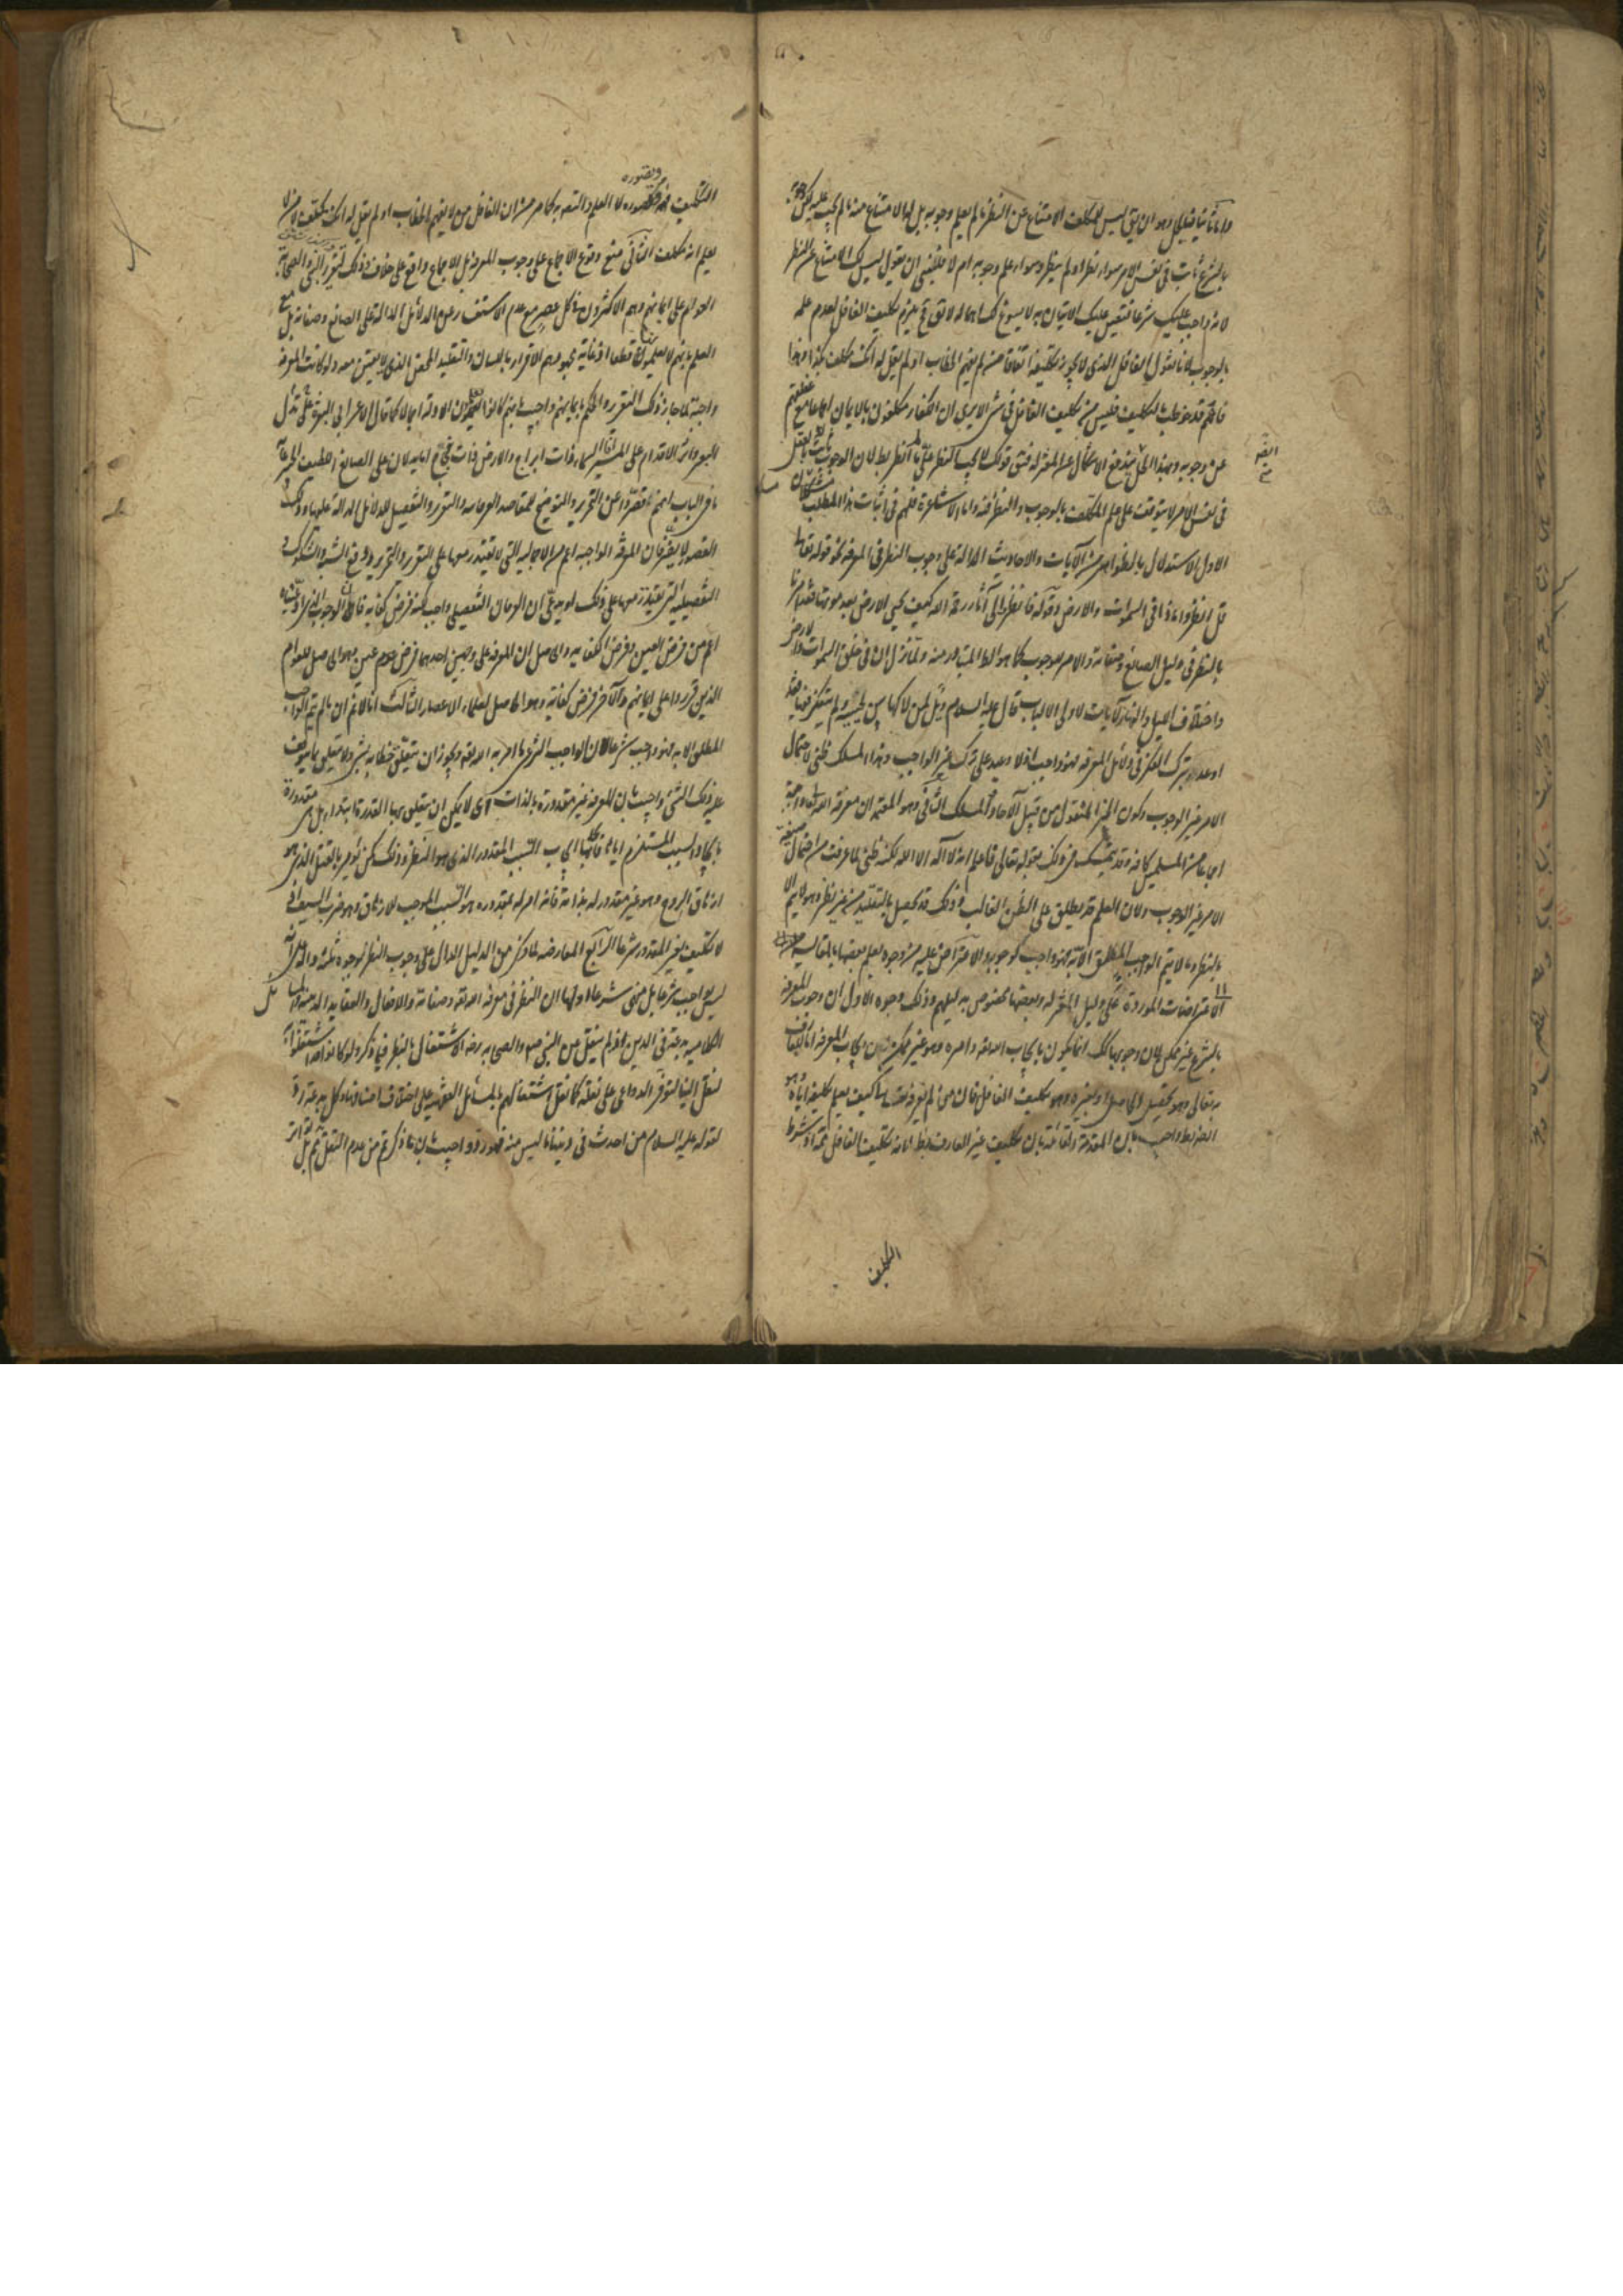 واما ثانيا فبالحل وهو ان يق ليس للمكلف الامتناع عن النظر ما لم يعلم وجوبه بل لها الامتناع منه ما لم يجب عليه لكن وجوبه
بالشرع ثابت في نفس الامر سواء نظر او لم ينظر وسواء علم وجوبه ام لا فللنبي ان يقول ليس لك الامتناع عن النظر
لانه واجب عليك شرعا فتعين عليك الاتيان به لا يسوغ لك اهماله لا يق فح يلزم تكليف الغافل لعدم علمه
بالوجوب لانا نقول الغافل الذي لا يجوز تكليفه اتفاقا من لم يفهم الخطاب او لم يقل له انك مكلف بكذا وهذا
فاهم قد خوطب بالتكليف فليس من تكليف الغافل في شئ الا يرى ان الكفار مكلفون بالايمان اجماعا مع غفلتهم
عن وجوبه وبهذا الحل يندفع الاشكال عن المعتزلة فمتى قولك لا يجب النظر علي ما لم انظر بط لان الوجوب ثابت بالعقل
في نفس الامر لا يتوقف على علم المكلف بالوجوب والنظر فيه واما الاشاعرة فلهم في اثبات هذا المطلب مسلكان
الاول الاستدلال بالظواهر من الآيات والاحاديث الدالة على وجوب النظر في المعرفة نحو قوله تعالى
قل انظروا ماذا في السموات والارض وقوله فانظر الى آثار رحمة الله كيف يحيي الارض بعد موتها فقد امرنا
بالنظر في دليل الصانع وصفاته والامر للوجوب كما هو الظ المتبادر منه ولما نزل ان في خلق السموات والارض
واختلاف الليل والنهار لآيات لاولي الالباب قال عليه السلام ويل لمن لاكها بين لحييه ولم يتفكر فيها فقد
اوعد بترك التفكر في دلائل المعرفة فهو واجب اذ لا وعيد على ترك غير الواجب وهذا المسلك ظني لاحتمال
الامر غير الوجوب وكون الخبر المنقول من قبيل الآحاد المسلك الثاني وهو المعتمد ان معرفة الله تعالى واجبة
اجماعا من المسلمين كافة وقد يتمسك في ذلك بقوله تعالى فاعلم انه لا اله الا الله لكنه ظني لما عرفت من احتمال صيغة
الامر غير الوجوب ولان العلم قد يطلق على الظن الغالب وذلك قد يحصل بالتقليد من غير نظر وهو لا يتم الا
بالنظر وما لا يتم الواجب المطلق الا به فهو واجب كوجوبه والاعتراض عليه من وجوه يعلم بعضها بالمقايسة
الاعتراضات الموردة على دليل المعتزلة وبعضها مخصوص بدليلهم وذلك وجوه الاول ان وجوب المعرفة
بالشرع غير ممكن لان وجوبها كك انما يكون بايجاب الله تعالى وامره وهو غير ممكن لان ايجاب المعرفة اما للعارف
به تعالى وهو تحصيل الحاصل او لغيره وهو تكليف الغافل فان من لم يعرفه تعالى كيف يعلم تكليفه اياه وهو
ايضا بط واجيب بان المقدمة القائلة بان تكليف غير العارف بط لانه تكليف الغافل مم اذ شرط
التكليف
التكليف فهمه وتصوره لا العلم والتصديق به كما مر من ان الغافل من لا يفهم الخطاب او لم يقل له انك مكلف لا من لا
يعلم انه مكلف الثاني منع وقوع الاجماع على وجوب المعرفة بل الاجماع واقع على خلافه وذلك لتقرير النبي والصحابة
العوام على ايمانهم وهم الاكثرون في كل عصر مع عدم الاستفسار عن الدلائل الدالة على الصانع وصفاته بل مع
العلم بانهم لا يعلمونها قطعا اذ غاية مجهودهم الاقرار باللسان والتقليد المحض الذي لا يقين معه ولو كانت المعرفة
واجبة لما جاز ذلك التقرير والحكم بايمانهم واجيب بانهم كانوا يعلمون الادلة اجمالا كما قال الاعرابي البعرة تدل على
البعير واثر الاقدام على المسير افسماء ذات ابراج وارض ذات فجاج اما يدلان على الصانع اللطيف الخبير غاية
ما في الباب انهم قصروا عن التحرير والتوضيح للمقاصد العرفانية والتقرير والتفصيل للدلائل الدالة عليها وذلك
القصور لا يضر فان المعرفة الواجبة اعم من الاجمالية التي لا يقتدر معها على التقرير والتحرير ودفع الشبه والشكوك و
التفصيلية التي يقتدر معها على ذلك او يدعي ان العرفان التفصيلي واجب لكنه فرض كفاية فان الوجوب
اعم من فرض العين وفرض الكفاية والحاصل ان المعرفة على وجهين احدهما فرض عين وهو الحاصل للعوام
الذين قرروا على ايمانهم والآخر فرض كفاية وهو الحاصل لعلماء الاعصار الثالث انا لا نم ان ما لا يتم الواجب
المطلق الا به فهو واجب شرعا لان الواجب الشرعي ما امر به الله تعالى ويجوز ان يتعلق خطابه بشئ ولا يتعلق بما يتوقف
عليه ذلك الشئ واجيب بان المعرفة غير مقدورة بالذات اي لا يمكن ان يتعلق بها القدرة ابتداء بل هي مقدورة
بايجاد السبب المستلزم اياها فايجابها ايجاب السبب المقدور الذي هو النظر وذلك كمن يؤمر بالقتل الذي هو
ازهاق الروح وهو غير مقدور له بذاته فانه امر له بمقدوره هو السبب الموجب للازهاق وهو ضرب السيف اذ
لا تكليف بغير المقدور شرعا الرابع المعارضة لما ذكر من الدليل الدال على وجوب النظر بوجوه ثلثة دالة على انه
ليس بواجب شرعا بل منهي شرعا اولها ان النظر في معرفة الله تعالى وصفاته والافعال والعقايد الدينية والمسايل
الكلامية بدعة في الدين اذ لم ينقل من النبي صلعم والصحابة رضه الاشتغال بالنظر فيما ذكر ولو كانوا قد اشتغلوا به
لنقل الينا لتوفر الدواعي على نقله كما نقل اشتغالهم بالمسائل الفقهية على اختلاف اصنافها وكل بدعة رد
لقوله عليه السلام من احدث في ديننا ما ليس منه فهو رد واجيب بان ما ذكرتم من عدم النقل مم بل تواتر